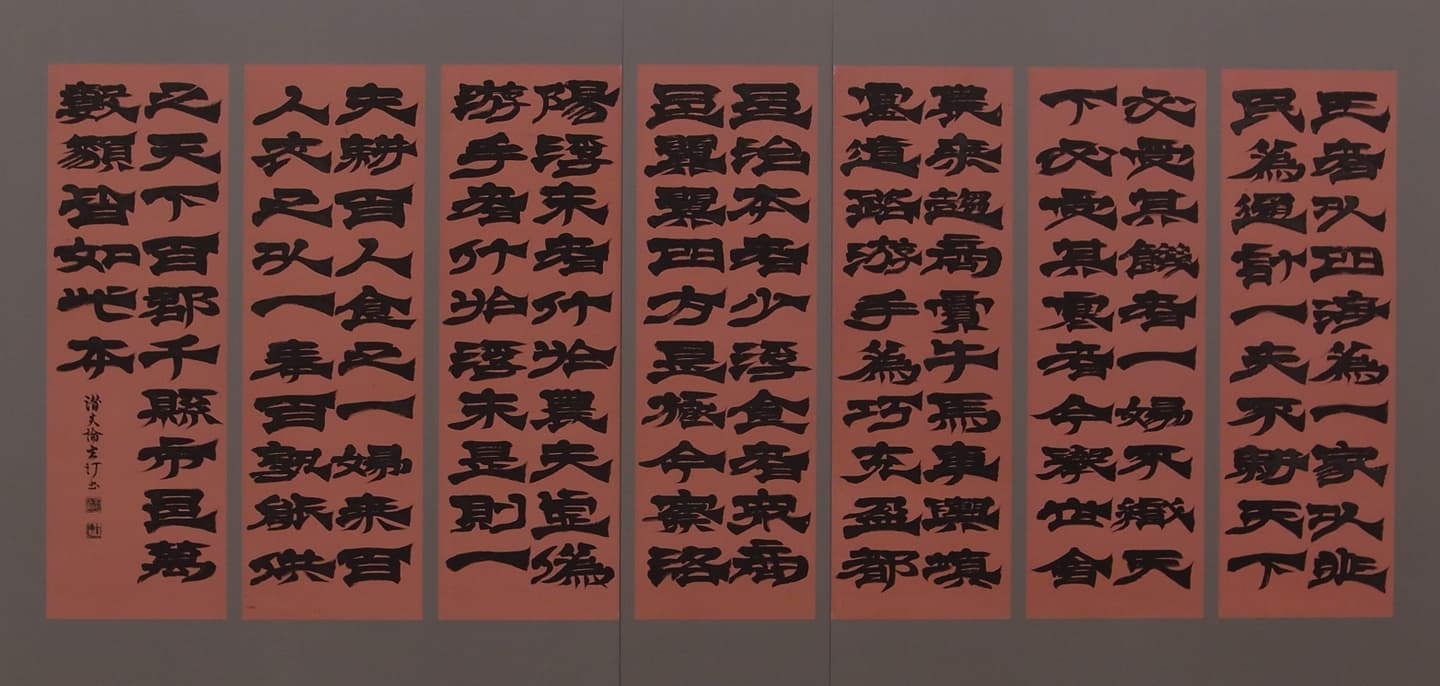 王者以四海為一家以兆
民為通計一夫不耕天下
必受其饑者一婦不織天
下必受其寒者今舉世舍
農桑趨商賈牛馬車輿填
塞道路游手為巧充盈都
邑治本者少浮食者眾商
邑翼翼四方是極今察洛
陽浮末者什於農夫虛偽
游手者什於浮末是則一
夫耕百人食之一婦桑百
人衣之以一奉百孰能供
之天下百郡千縣市邑萬
數類皆如此本
潛夫論玄汀書